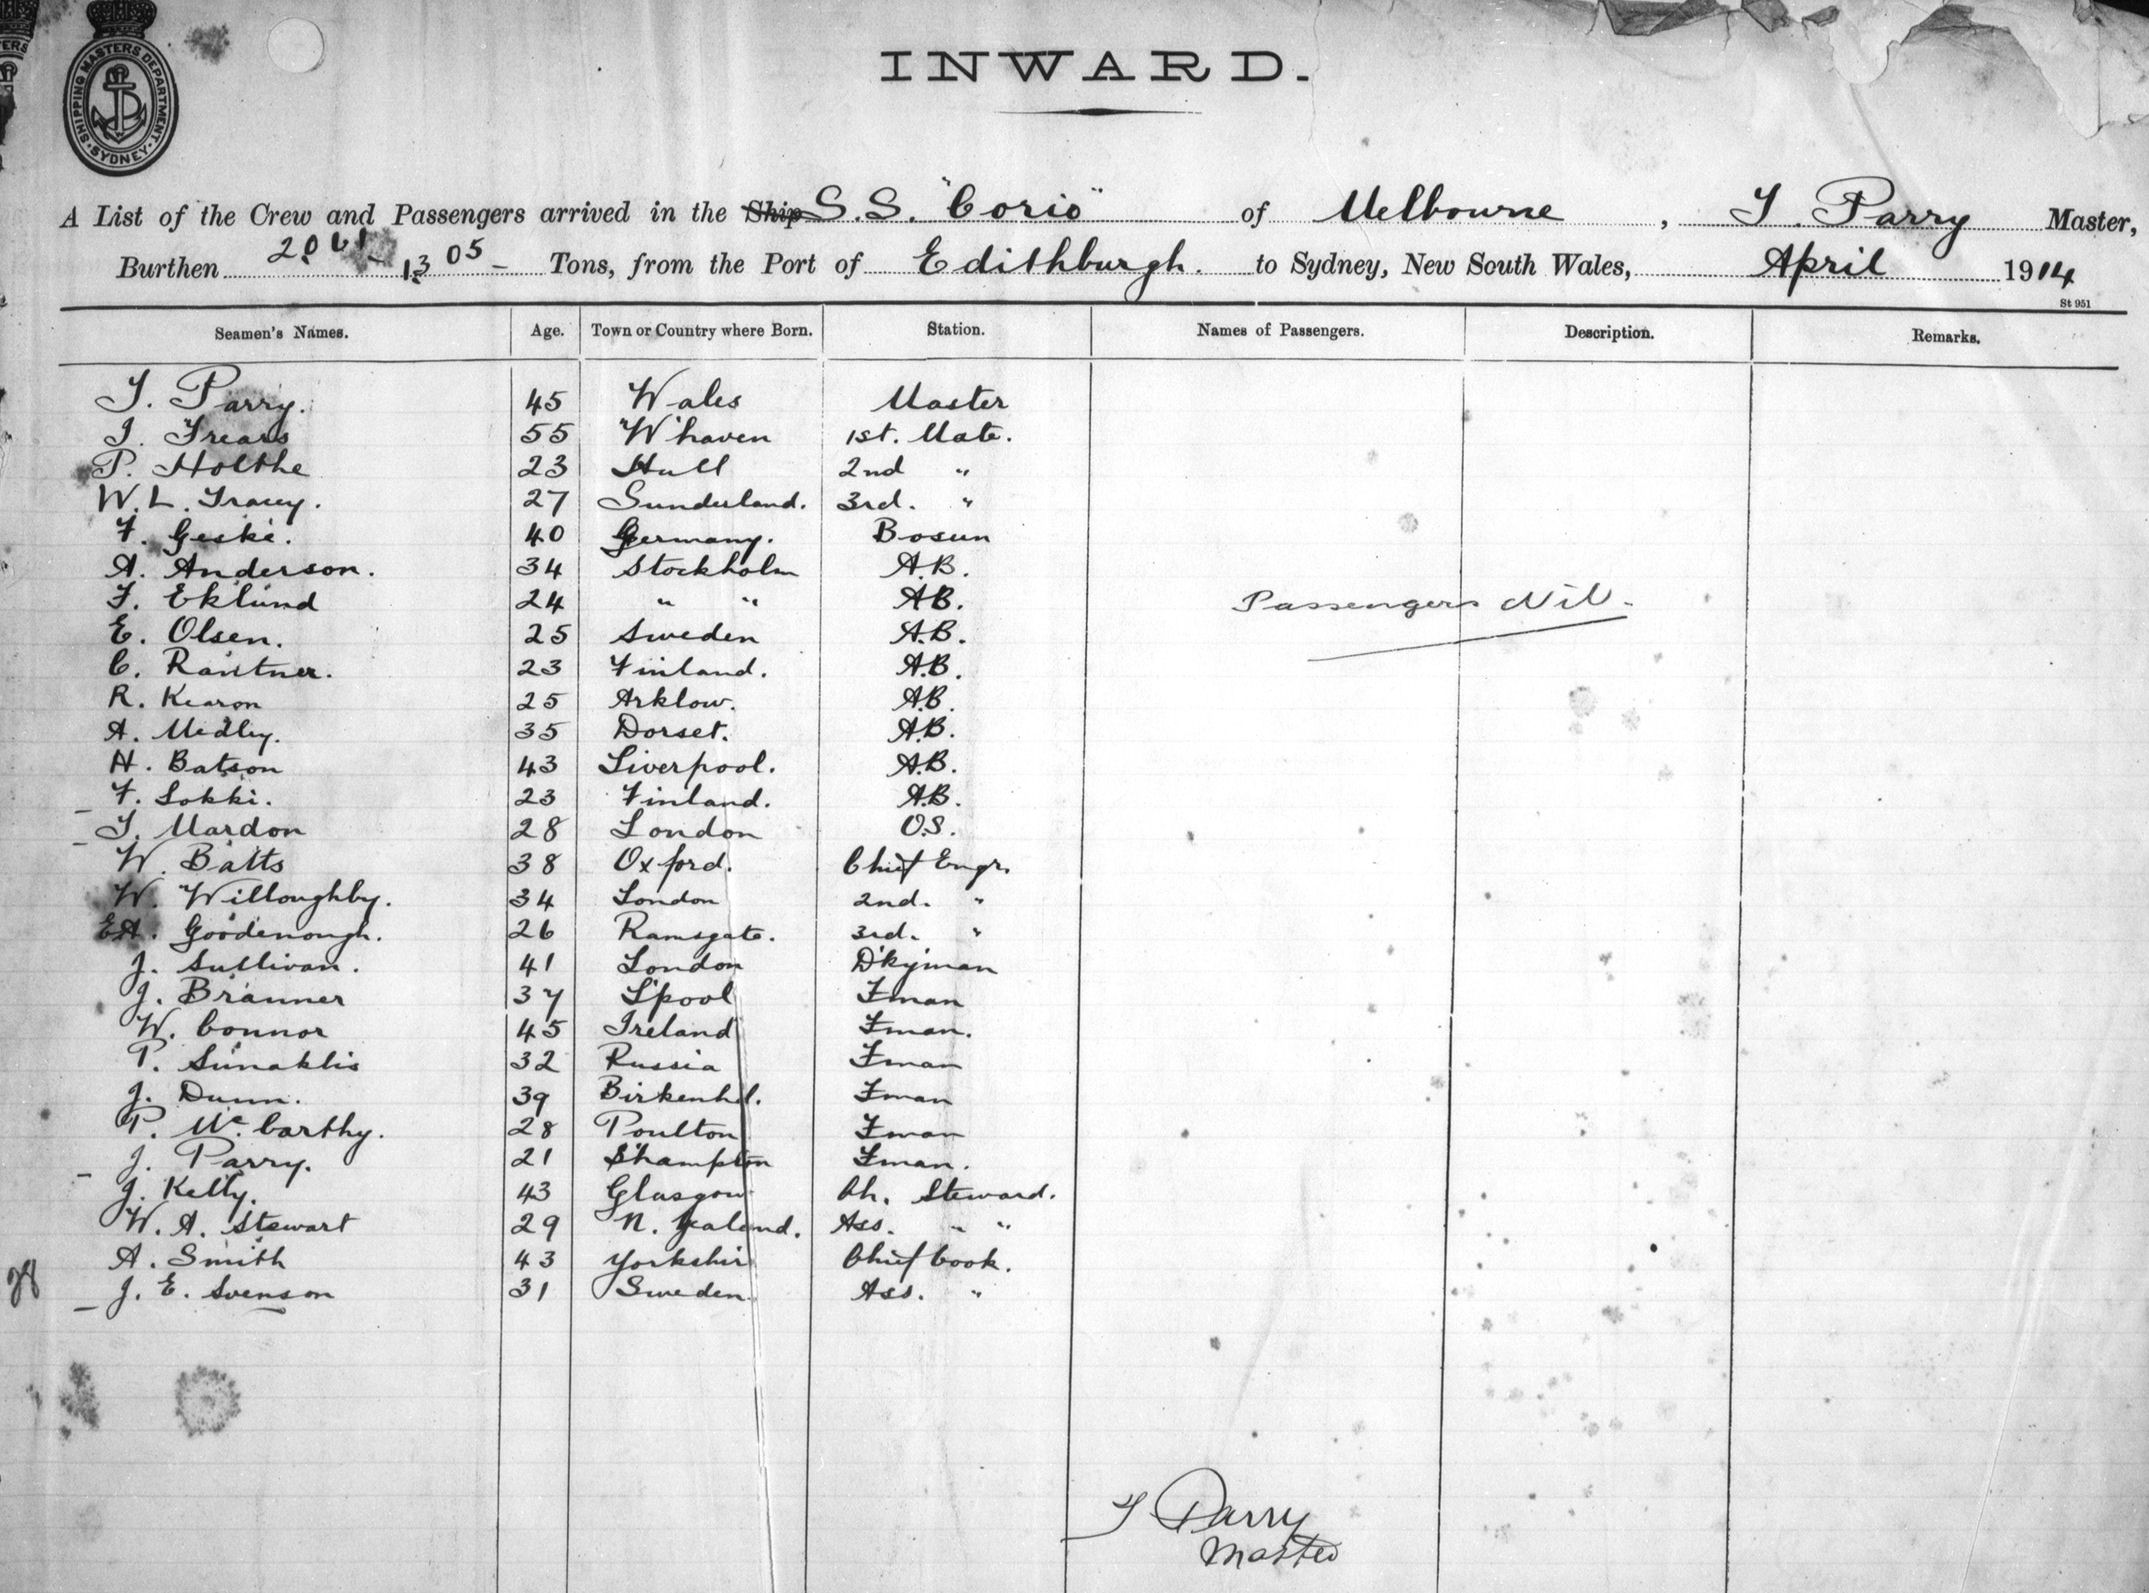 SHIPPING MASTERS DEPARTMENT
SYDNEY
INWARD.
A List of the Crew and Passengers arrived in the Ship S.S. "Corio" of Melbourne, T. Parry Master,
Burthen 2061 - 1305 - Tons, from the Port of Edithburgh. to Sydney, New South Wales, April 1914
St 951
Seamen's Names. Age. Town or Country where Born. Station. Names of Passengers. Description. Remarks.
T. Parry. 45 Wales Master
J. Frears 55 W'haven 1st. Mate.
P. Holthe 23 Hull 2nd "
W. L. Tracey. 27 Sunderland. 3rd. "
F. Geske. 40 Germany. Bosun
A. Anderson. 34 Stockholm A.B.
F. Eklund 24 " " A.B. Passengers Nil.
E. Olsen. 25 Sweden A.B.
C. Rantner. 23 Finland. A.B.
R. Kearon 25 Arklow. A.B.
A. Medley. 35 Dorset. A.B.
H. Batson 43 Liverpool. A.B.
F. Lokki. 23 Finland. A.B.
T. Mardon 28 London O.S.
W. Batts 38 Oxford. Chief Engr.
W. Willoughby. 34 London 2nd. "
E.A. Goodenough. 26 Ramsgate. 3rd. "
J. Sullivan. 41 London D'kyman
J. Branner 37 L'pool Fman
W. Connor 45 Ireland Fman.
P. Sunaklis 32 Russia Fman
J. Dunn. 39 Birkenhd. Fman
P. McCarthy. 28 Poulton Fman
J. Parry. 21 S'hampton Fman.
J. Kelly. 43 Glasgow Ch. Steward.
W. A. Stewart 29 N. Zealand. Ass. " "
A. Smith 43 Yorkshir Chief Cook.
28 J. E. Svenson 31 Sweden. Ass. "
T Parry
Master